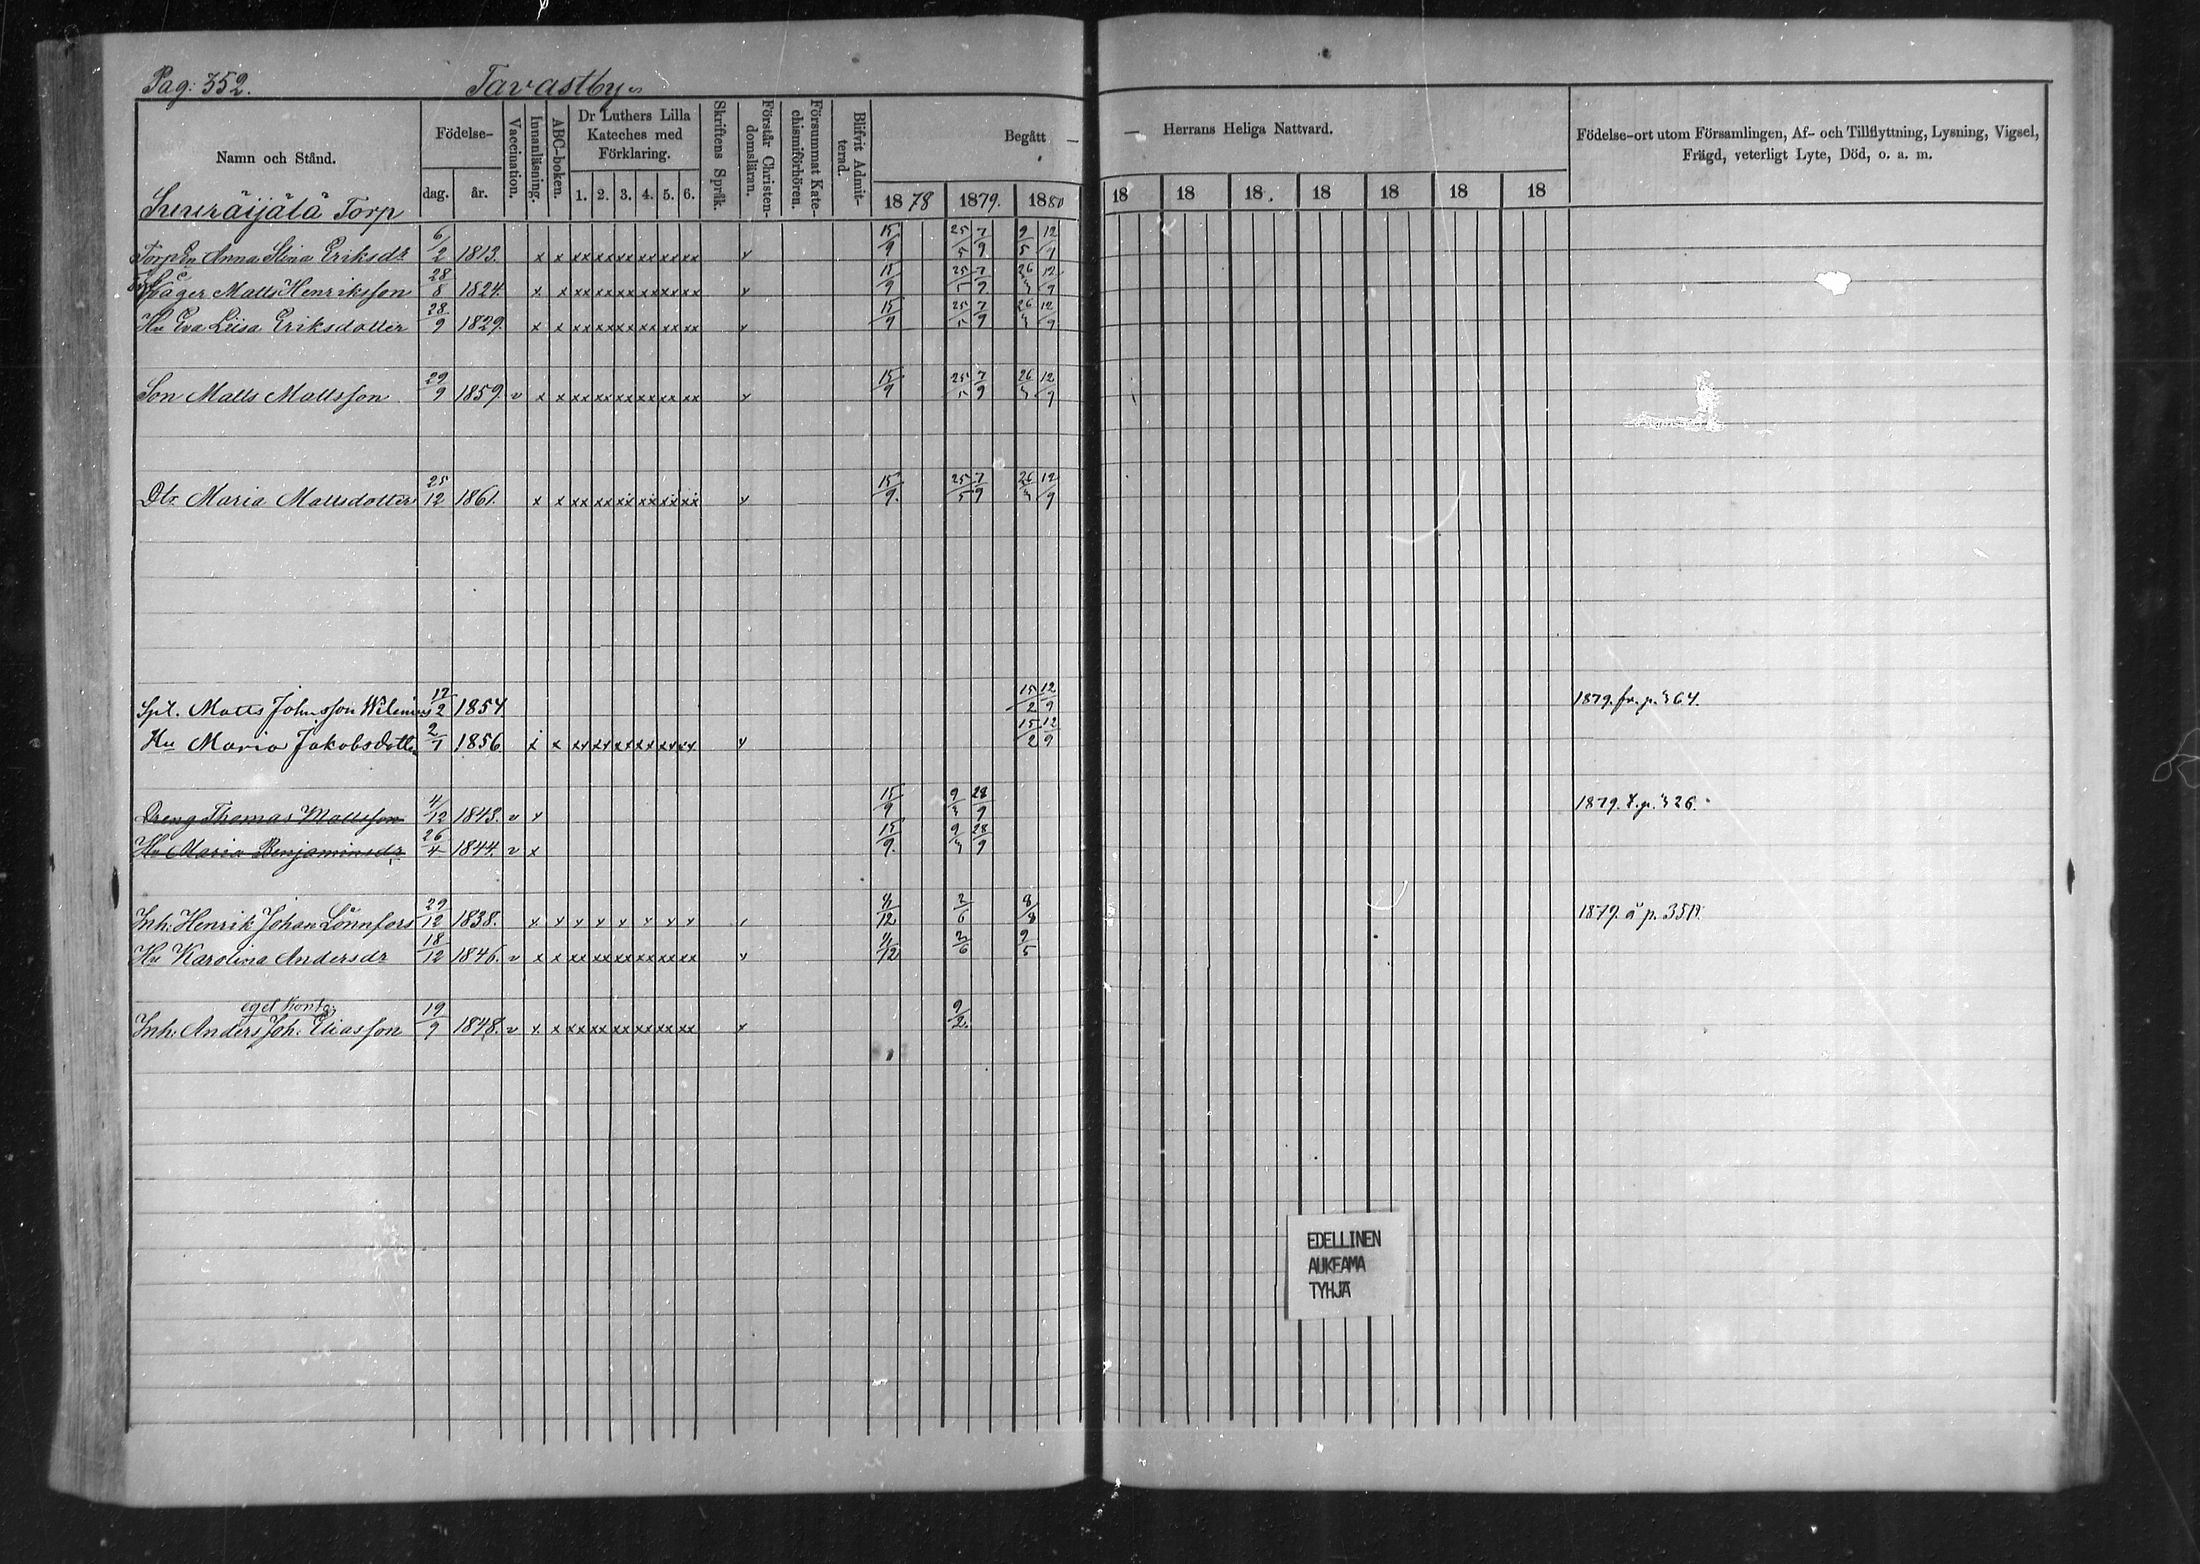 Pag: 352. Tavastby
Namn och Stånd. Födelse- dag. år. Vaccination. Innanläsning. ABC-boken. Dr Luthers Lilla Kateches med Förklaring. 1. 2. 3. 4. 5. 6. Skriftens Språk. Förstår Christendomsläran. Försummat Katechismiförhören. Blifvit Admitterad. Begått — Herrans Heliga Nattvard. Födelse-ort utom Församlingen, Af- och Tillflyttning, Lysning, Vigsel, Frägd, veterligt Lyte, Död, o. a. m.
1878 1879. 1880 18 18 18 18 18 18 18
Torp
Anna Stina Eriksdr 6/2 1813. x x xx xx xx xx xx xx x 15/9 25/5 7/9 9/5 12/9
Måger Matts Henriksson 28/8 1824. x x xx xx xx xx xx xx x 15/9 25/5 7/9 26/3 12/9
Hu Eva Lisa Eriksdotter 28/9 1829. x x xx xx xx xx xx xx x 15/9 25/5 7/9 26/3 12/9
Son Matts Mattsson 29/9 1859. v x x xx xx xx xx xx xx x 15/9 25/5 7/9 26/3 12/9
Dtr Maria Mattsdotter 25/12 1861. x x xx xx xx xx xx xx x 15/9. 25/5 7/9 26/3 12/9
Spt. Matts Johnsson 17/2 1854 15/2 12/9 1879. fr. p. 364.
Hu Maria Jakobsdotter 2/1 1856 x x xx xx xx xx xx xx x 15/2 12/9
Dreng Thomas Mattsson 4/12 1843. v x 15/9 9/3 28/9 1879. t. p. 326.
Hu Maria Benjaminsdr 26/4 1844. v x 15/9. 9/3 28/9
Inh. Henrik Johan Lönnfors 29/12 1838. x x x x x x x x x 4/12 2/6 8/8 1879. å p.
Hu Karolina Andersdr 18/12 1846. v x x xx xx xx xx xx xx x 4/12 2/6 9/5
eget
Inh. Anders Joh. Eliasson 19/9 1848. v x x xx xx xx xx xx xx x 9/2.
EDELLINEN
AUKEAMA
TYHJÄ